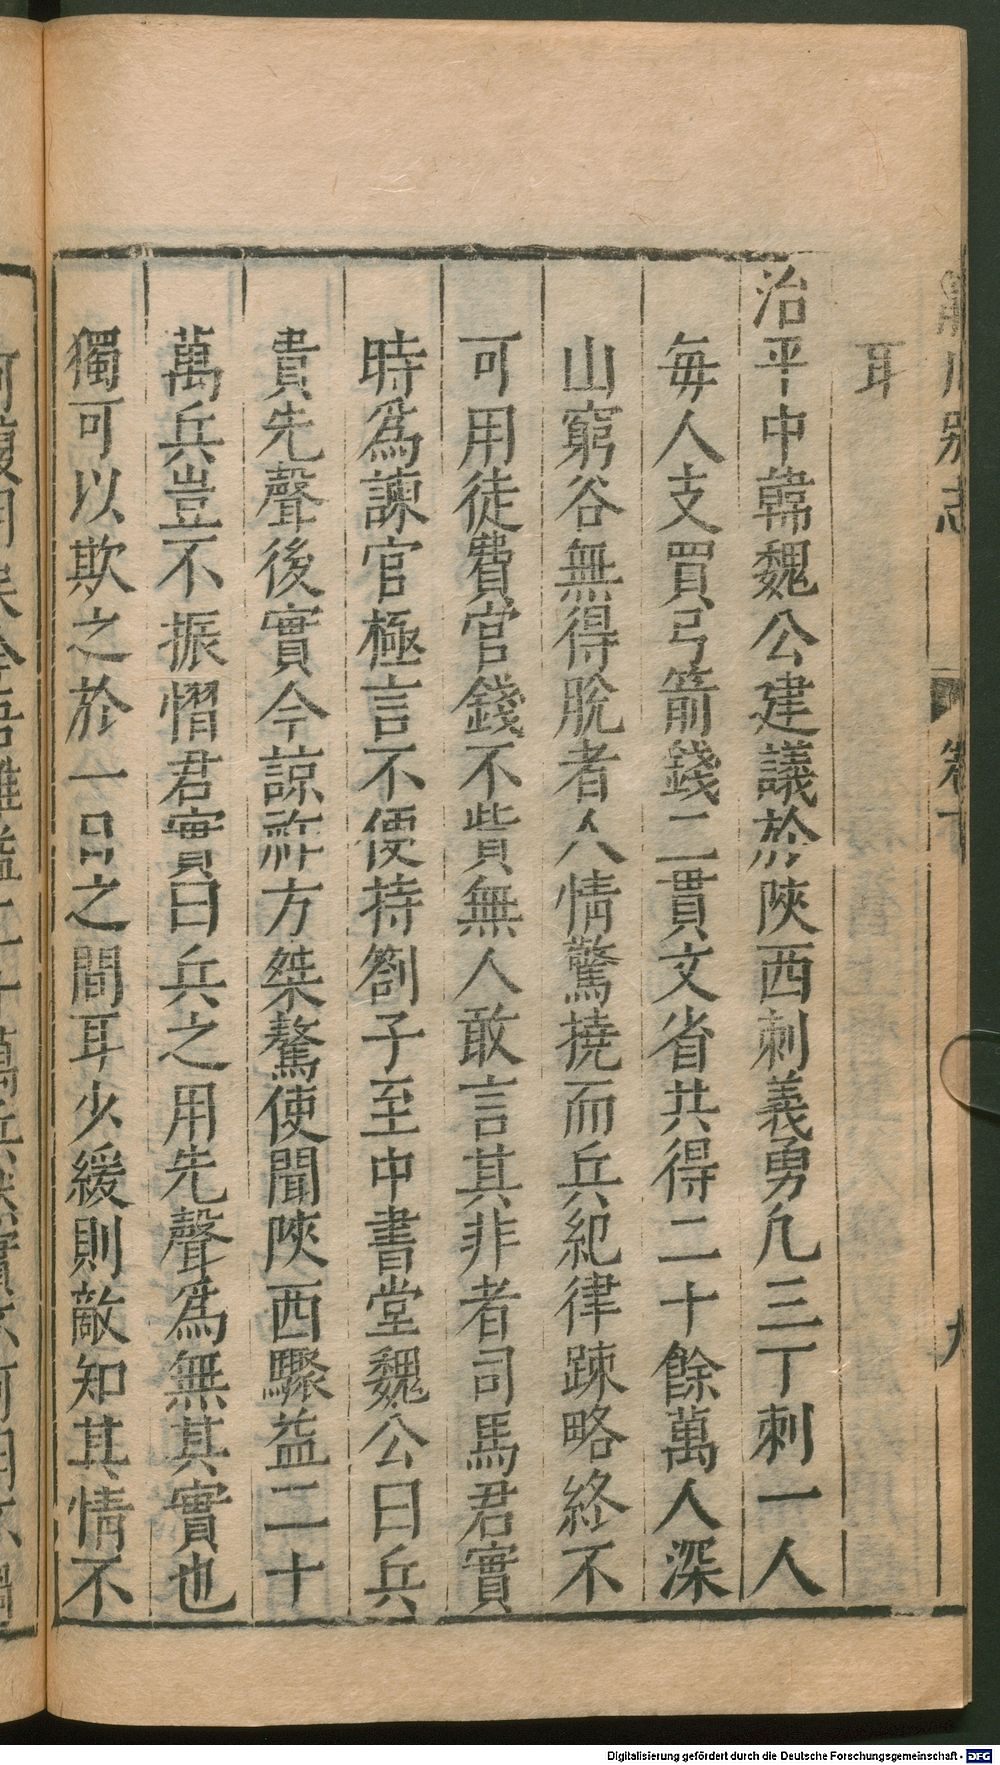 耳
治平中韓魏公建議於陝西刺義勇凡三丁刺一人
每人支買弓箭錢二貫文省共得二十餘萬人深
山窮谷無得脫者人情驚撓而兵紀律踈略終不
可用徒費官錢不貲無人敢言其非者司馬君實
時爲諫官極言不便持劄子至中書堂魏公曰兵
貴先聲後實今諒祚方桀驁使聞陝西驟益二十
萬兵豈不振慴君實曰兵之用先聲爲無其實也
獨可以欺之於一日之間耳少緩則敵知其情不
Digitalisierung gefördert durch die Deutsche Forschungsgemeinschaft - DFG